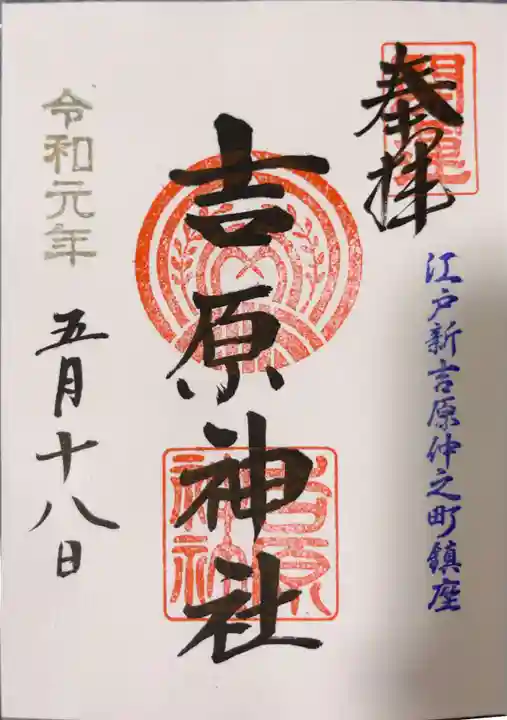 開運
奉拝
江戸新吉原仲之町鎮座
吉原神社
吉原
神社
令和元年
五月十八日